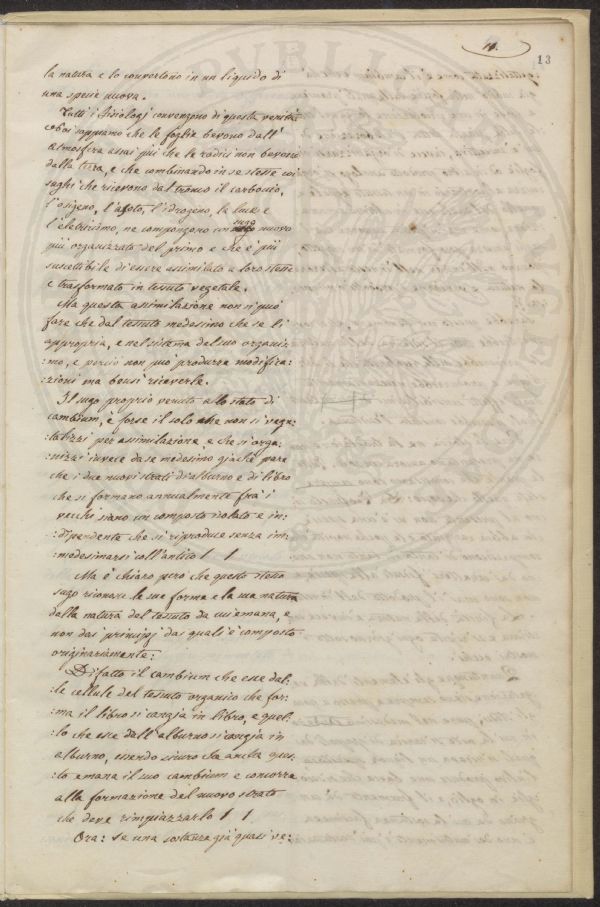 10.
13
la natura e lo convertono in un liquido di
una specie nuova.
Tutti i Fisiologj convengono di questa verità
e Noi sappiamo che le foglie bevono dall'
atmosfera assai più che le radici non bevono
dalla terra, e che combinando in se stesse coi
sughi che ricevono dal tronco il carbonio,
l'osigeno, l'azoto, l'idrogeno, la luce e
l'elettricismo, ne compongono un sugo nuovo
più organizzato del primo e che è più
suscettibile di essere assimilato a loro stesse
e trasformato in tessuto vegetale.
Ma questa assimilazione non si può
fare che dal tessuto medesimo che se li
appropria, e nel sistema del suo organis:
:mo, e perciò non può produrre modifica:
:zioni ma bensì riceverle.
Il sugo proprio venuto allo stato di
cambium, è forse il solo che non si vege:
:talizzi per assimilazione, e che si orga:
:nizzi invece da se medesimo giacchè pare
che i due nuovi strati di alburno e di libro
che si formano annualmente frà i
vecchi siano un composto isolato e in:
:dipendente che si riproduce senza im:
:medesimarsi coll'antico / /
Ma è chiaro però che questo stesso
sugo riconosce le sue forme e la sua natura
dalla natura del tessuto da cui emana, e
non dai principj dai quali è composto
originariamente:
Difatto il cambium che esce dal:
:le cellule del tessuto organico che for:
:ma il libro si cangia in libro, e quel:
:lo che esce dall'alburno si cangia in
alburno, essendo sicuro che anche ques:
:to emana il suo cambium e concorre
alla formazione del nuovo strato
che deve rimpiazzarlo / /
Ora: se una sostanza già quasi ve: